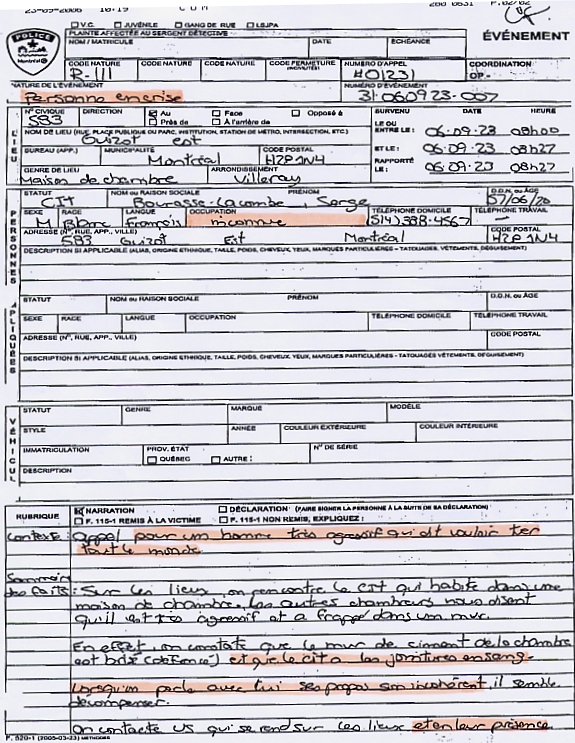 23-09-2006 10:19 C U M 280 0631 P.02/02
V.C. JUVÉNILE GANG DE RUE LSJPA
PLAINTE AFFECTÉE AU SERGENT DÉTECTIVE
POLICE Montréal
NOM / MATRICULE DATE ÉCHÉANCE
ÉVÉNEMENT
CODE NATURE CODE NATURE CODE NATURE CODE FERMETURE NUMÉRO D'APPEL COORDINATION
R-111 #01231 OP-
NATURE DE L'ÉVÉNEMENT NUMÉRO D'ÉVÉNEMENT
Personne en crise 31-060923-007
LIEU
N° CIVIQUE DIRECTION Au Face Opposé à SURVENU DATE HEURE
593 Près de À l'arrière de LE OU ENTRE LE : 06.09.23 08h00
NOM DE LIEU (RUE, PLACE PUBLIQUE OU PARC, INSTITUTION, STATION DE MÉTRO, INTERSECTION, ETC.)
Guizot est
BUREAU (APP.) MUNICIPALITÉ CODE POSTAL ET LE : 06.09.23 08h27
Montréal H2P 1N4
GENRE DE LIEU ARRONDISSEMENT RAPPORTÉ LE : 06.09.23 08h27
Maison de chambre Villeray
PERSONNES
STATUT NOM ou RAISON SOCIALE PRÉNOM D.D.N. ou ÂGE
CIT Bourasse-Lacombe, Serge 57/06/20
SEXE RACE LANGUE OCCUPATION TÉLÉPHONE DOMICILE TÉLÉPHONE TRAVAIL
M Blanc François inconnue (514) 388-4567 -
ADRESSE (N°, RUE, APP., VILLE) CODE POSTAL
593 Guizot Est Montréal H2P 1N4
DESCRIPTION SI APPLICABLE (ALIAS, ORIGINE ETHNIQUE, TAILLE, POIDS, CHEVEUX, YEUX, MARQUES PARTICULIÈRES - TATOUAGES, VÊTEMENTS, DÉGUISEMENT)
IMPLIQUÉES
STATUT NOM ou RAISON SOCIALE PRÉNOM D.D.N. ou ÂGE
SEXE RACE LANGUE OCCUPATION TÉLÉPHONE DOMICILE TÉLÉPHONE TRAVAIL
ADRESSE (N°, RUE, APP., VILLE) CODE POSTAL
DESCRIPTION SI APPLICABLE (ALIAS, ORIGINE ETHNIQUE, TAILLE, POIDS, CHEVEUX, YEUX, MARQUES PARTICULIÈRES - TATOUAGES VÊTEMENTS, DÉGUISEMENT)
VÉHICUL
STATUT GENRE MARQUE MODÈLE
STYLE ANNÉE COULEUR EXTÉRIEURE COULEUR INTÉRIEURE
IMMATRICULATION PROV. ÉTAT N° DE SÉRIE
QUÉBEC AUTRE :
DESCRIPTION
RUBRIQUE NARRATION DÉCLARATION (FAIRE SIGNER LA PERSONNE À LA SUITE DE SA DÉCLARATION)
F. 115-1 REMIS À LA VICTIME F. 115-1 NON REMIS, EXPLIQUEZ :
Contexte : Appel pour un homme très agressif qui dit vouloir tuer
tout le monde
Sommaire
des faits : Sur les lieux, on rencontre le CIT qui habite dans une
maison de chambre. Les autres chambreurs nous disent
qu'il est très agressif et a frappé dans un mur.
En effet, on constate que le mur de ciment de la chambre
est brisé (défoncé) et que le cit a les jointures en sang.
Lorsqu'on parle avec lui ses propos son incohérent, il semble
décompenser.
On contacte US qui se rend sur les lieux et en leur présence
F. 520-1 (2005-03-23) MÉTHODES